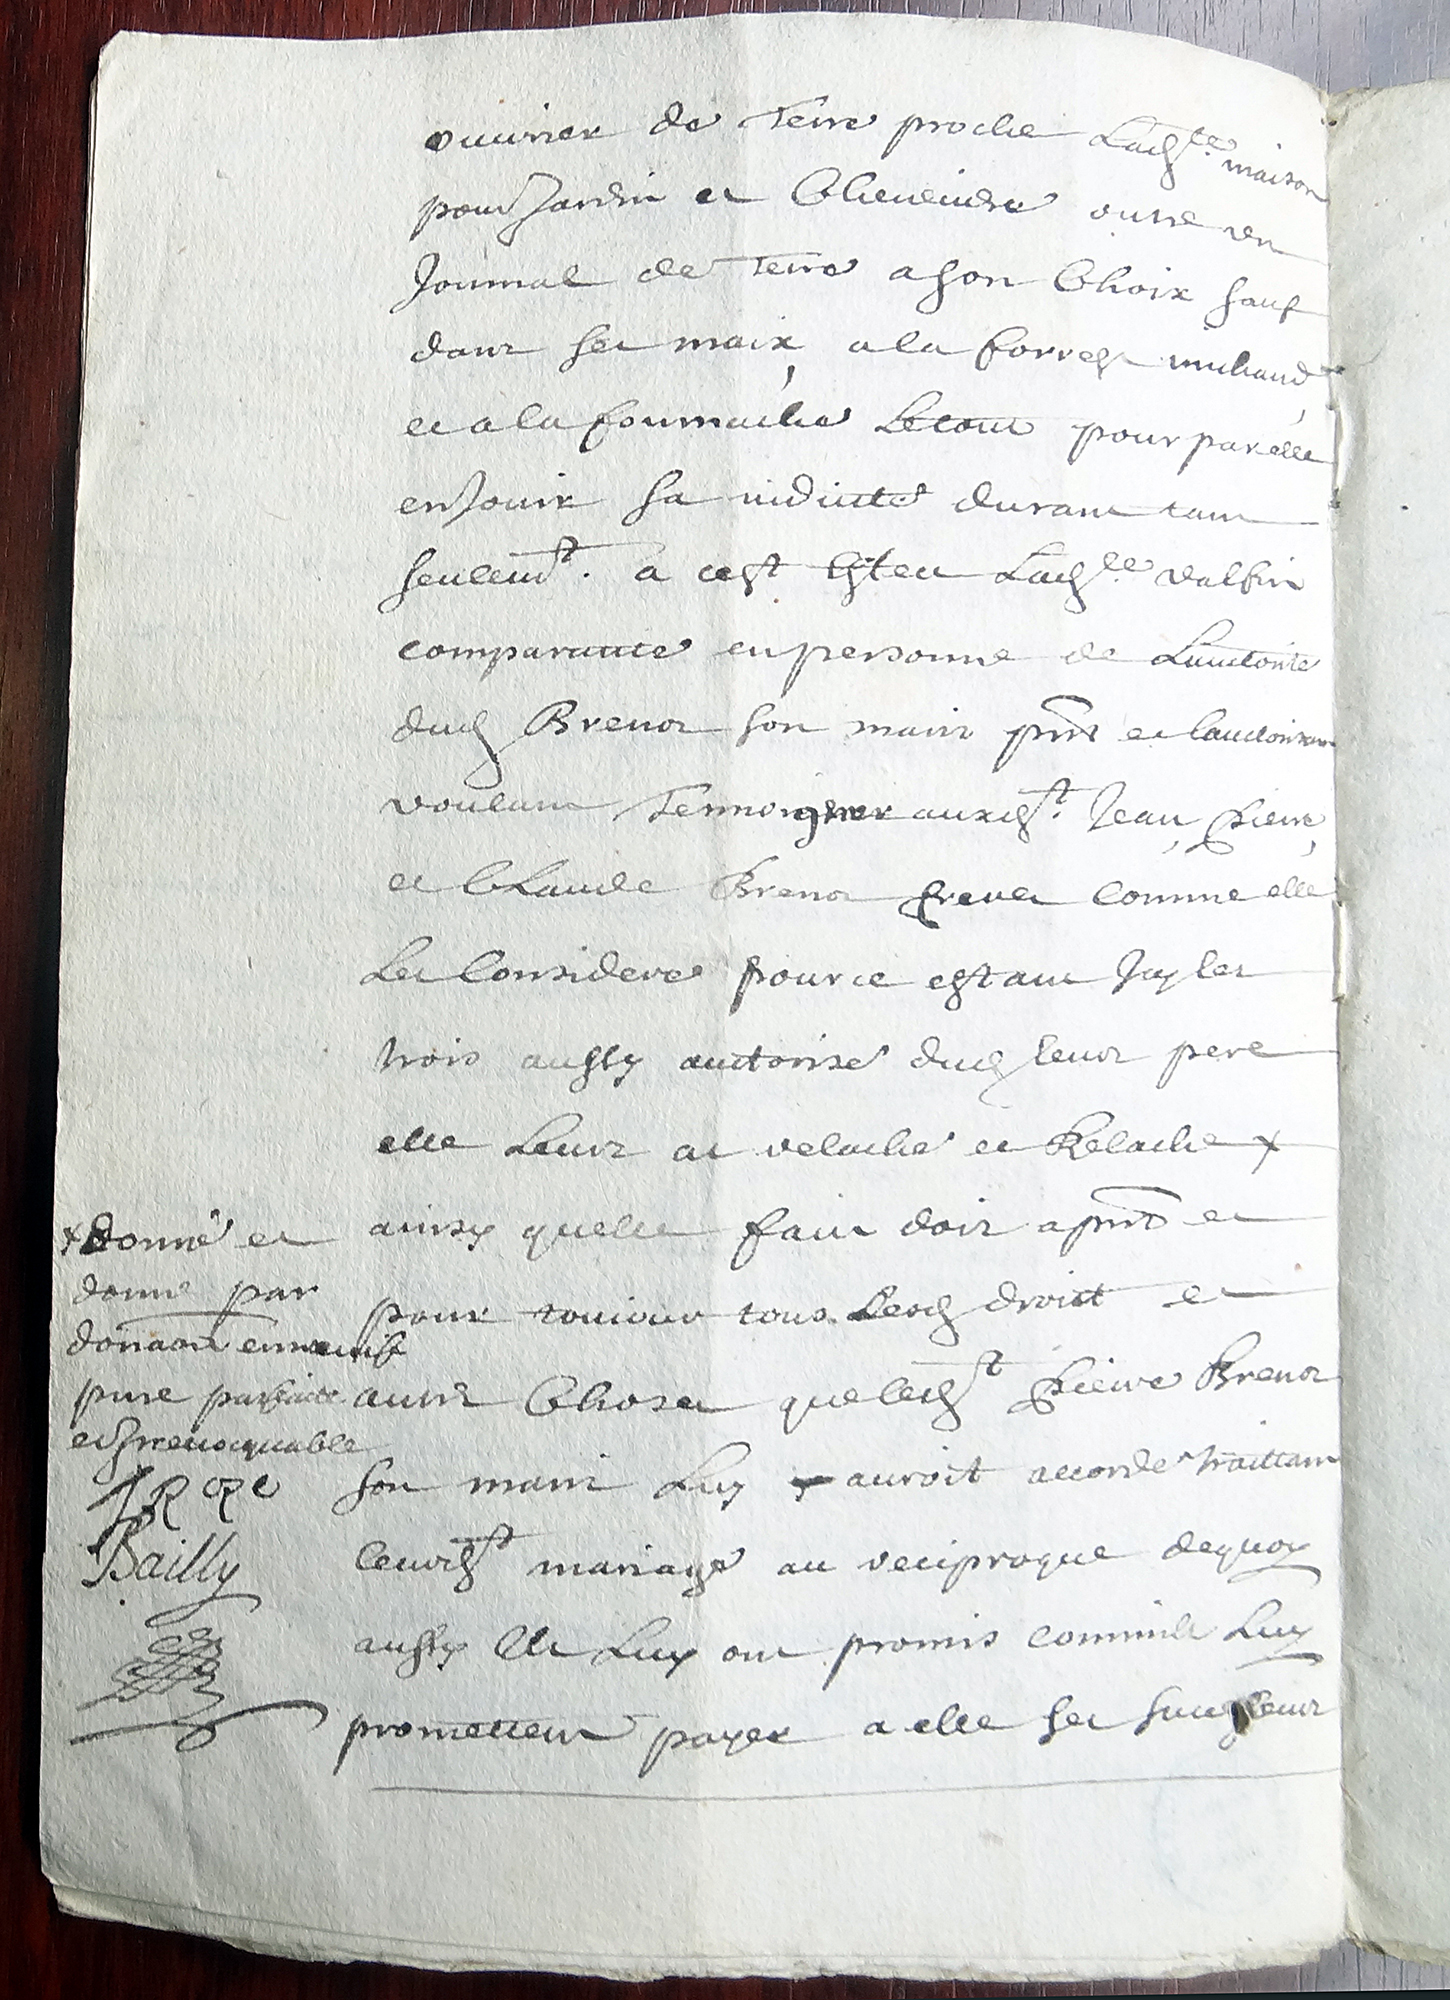 ouurier de Terre proche Lad.te maison
pour Jardin et Cheneuiere outre un
Journal de Terre a son Choix sauf
dans ses maix, a la forrest michaud,
et a la fournache Le tout pour par elle
en Jouir sa viduité durant tant
seulem.t. a cest effect Lad.te valfin
comparante en personne de Lauctorite
dud Brenot son marit pnt et lauctorisant
voulant Temoigner ausd.t. Jean, Pierre,
et Claude Brenot freres comme elle
Les Considere pour ce estant Icy les
trois aussy auctorisé dud leur pere
elle Leur at relaché et Relache +
ainsy quelle fait dois a pnt et
pour touiour tous Lesd droict et
autre Choses que led.t Pierre Brenot
son marit Luy auroit accordé traittant
leurd.t mariage au reciproque dequoy
aussy Ils Luy ont promis comme Ils Luy
promettent payer a elle ses sud leur
+ Donné et
donne par
donaon entreuifs
pure parfaite
et Irreuocquable
Bailly